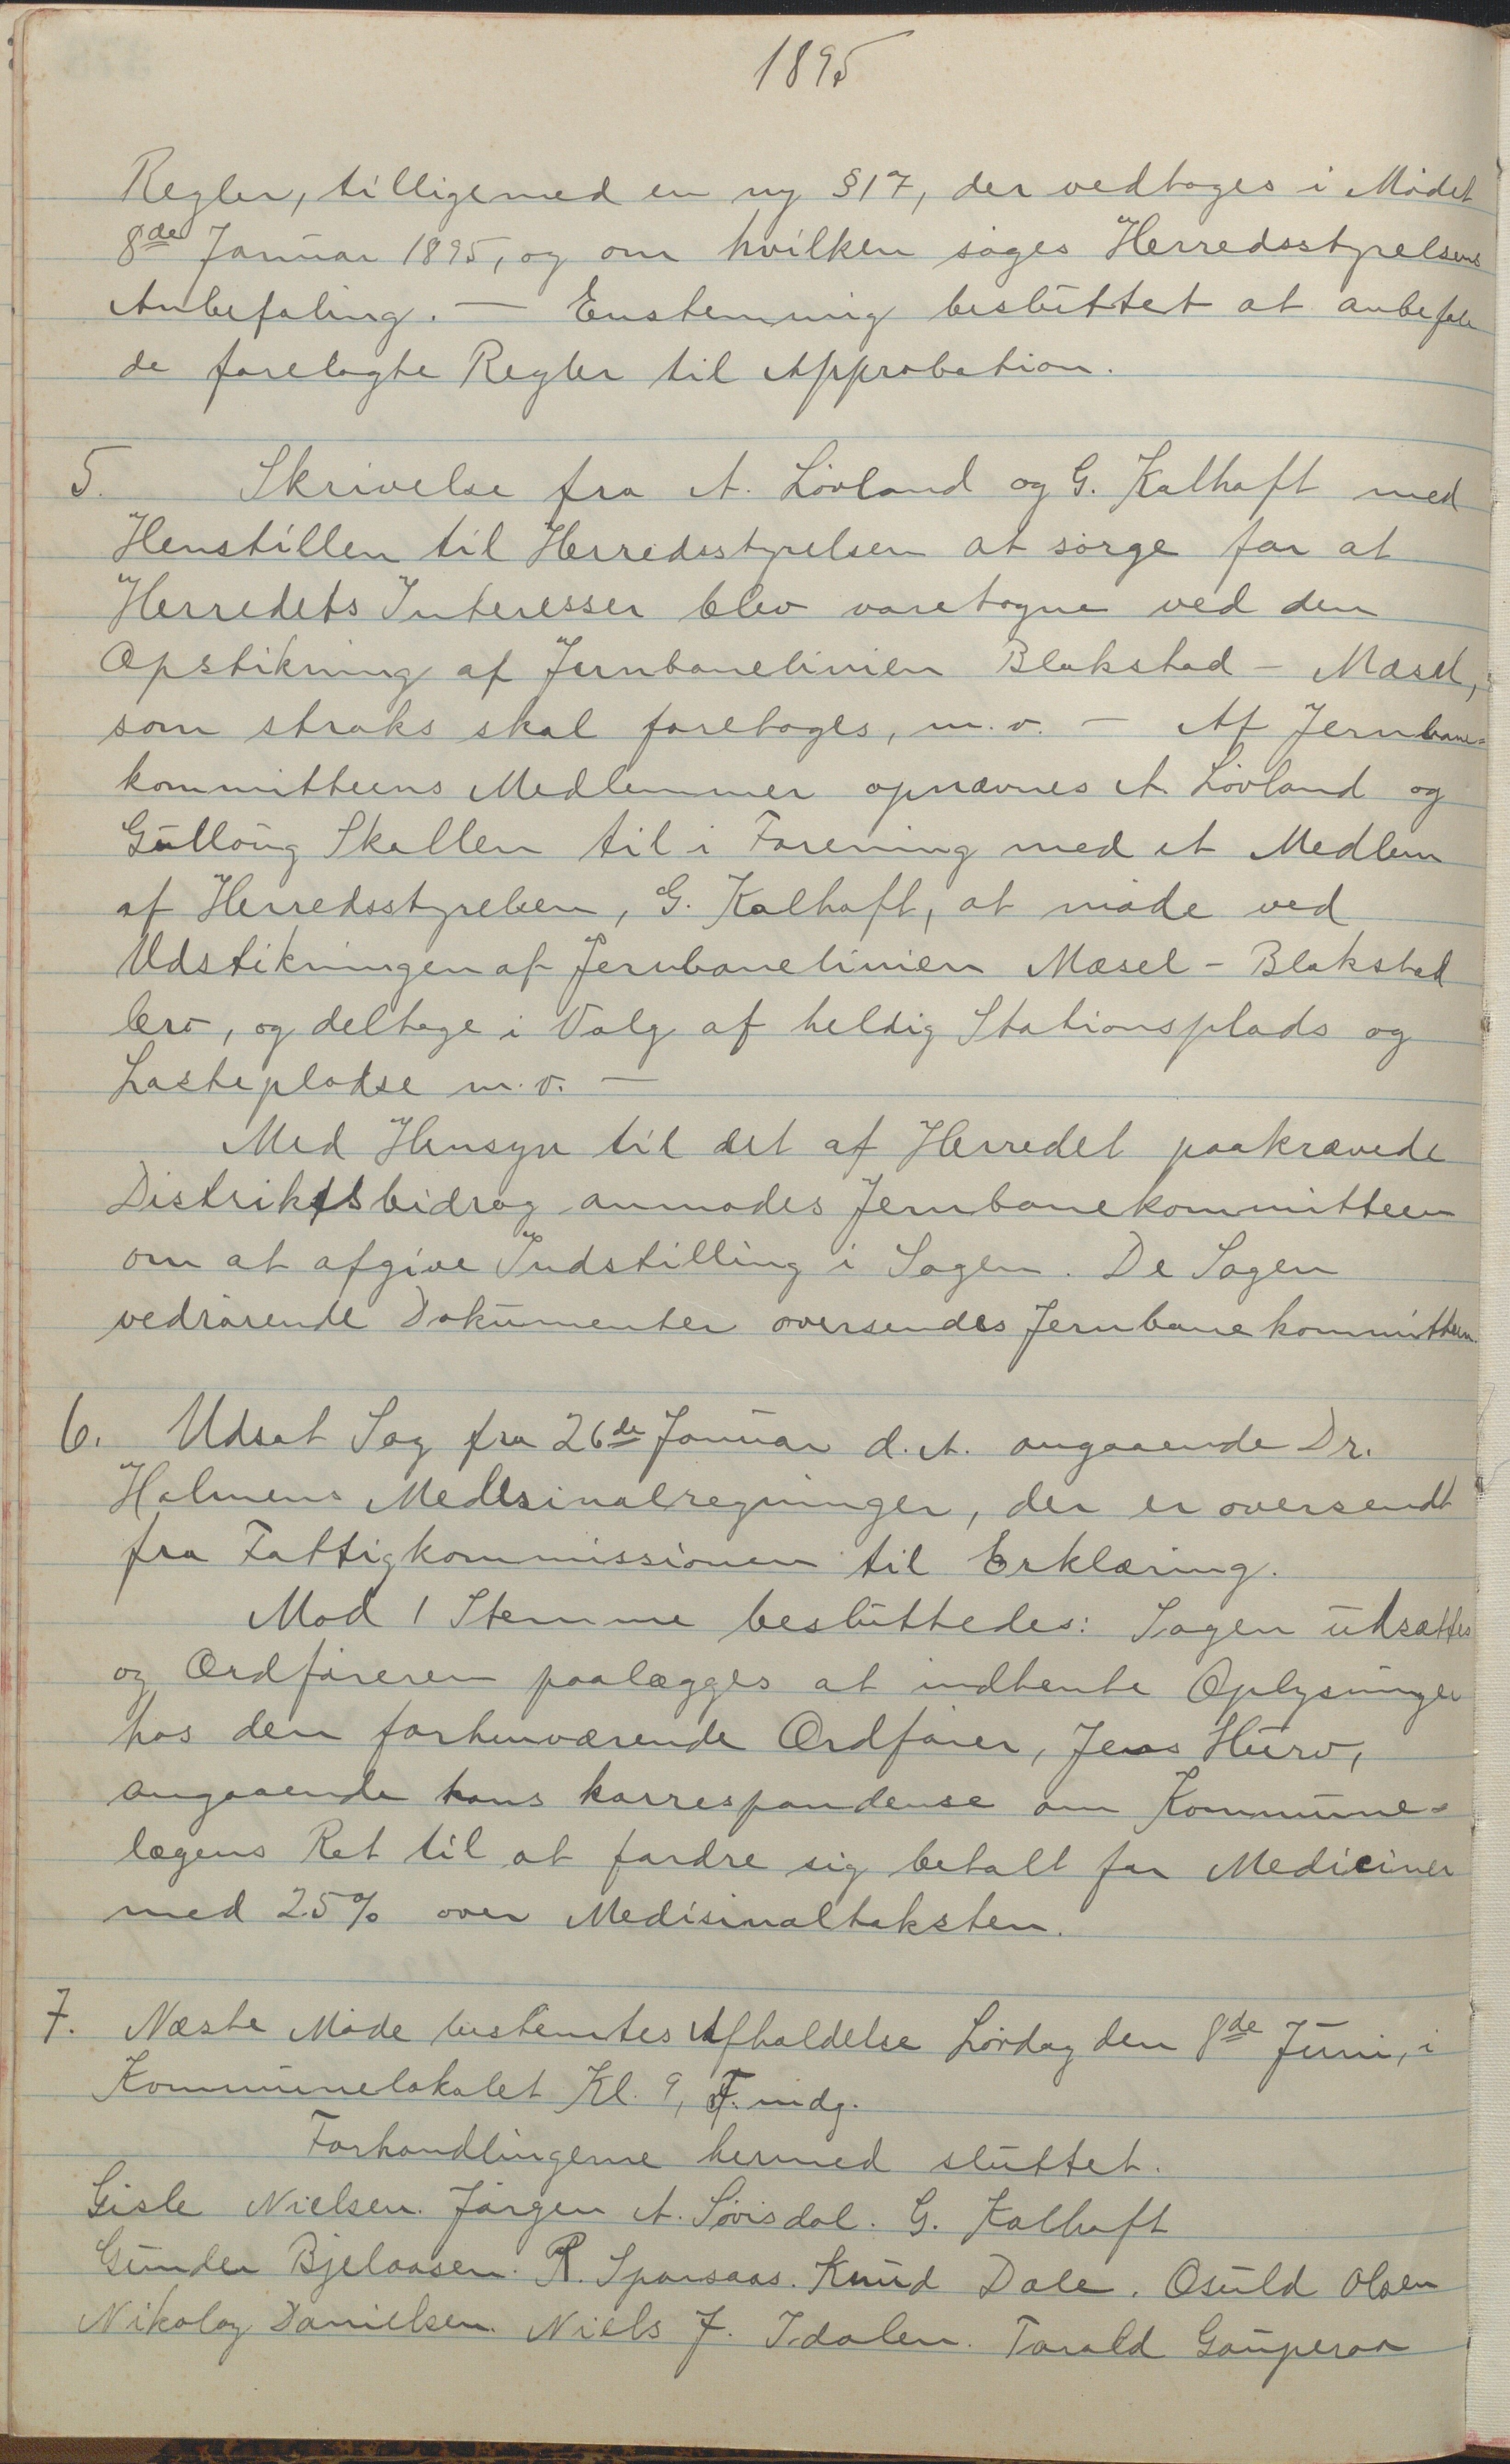 1895
Regler, tilligemed en ny §17, der vedtoges i Mødet
8de Januar 1895, og om hvilken søges Herredsstyrelsens
Anbefaling. — Enstemmig besluttet at anbefale
de forelagte Regler til Approbation.
5. Skrivelse fra A. Løvland og G. Kalhaft med
Henstillen til Herredsstyrelsen at sørge for at
Herredets Interesser blev varetagne ved den
Opstikning af Jernbanelinien Blakstad - Mæsel,
som straks skal foretages, m.v. — Af Jernbane-
kommitteens Medlemmer opnævnes A. Løvland og
Gulloug Skallen til i Forening med et Medlem
af Herredsstyrelsen, G. Kalhaft, at møde ved
Udstikningen af Jernbanelinien Mæsel - Blakstad
bro, og deltage i Valg af heldig Stationsplads og
Lastepladse m.v. —
Med Hensyn til det af Herredet paakrævede
Distriktsbidrag anmodes Jernbanekommitteen
om at afgive Indstilling i Sagen. De Sagen
vedrørende Dokumenter oversendes Jernbanekommitteen.
6. Udsat Sag fra 26de Januar d.A. angaaende Dr.
Holmens Medisinalregninger, der er oversendt
fra Fattigkommissionen til Erklæring.
Mod 1 Stemme besluttedes: Sagen udsættes
og Ordføreren paalægges at indhente Oplysninger
hos den forhenværende Ordfører, Jens Hurv,
angaaende hans korrespondense om Kommune-
lægens Ret til at fordre sig betalt for Mediciner
med 25% over Medisinaltaksten.
7. Næste Møde bestemtes Afholdelse Lørdag den 8de Juni, i
Kommunelokalet Kl. 9, F.mdg.
Forhandlingerne hermed sluttet.
Gisle Nielsen. Jørgen A. Løvisdal. G. Kalhaft
Gunder Bjelaasen. R. Sparsaas. Knud Dale. Osuld Olsen
Nikolay Danielsen. Niels J. Idalen. Tarald Gauperaa